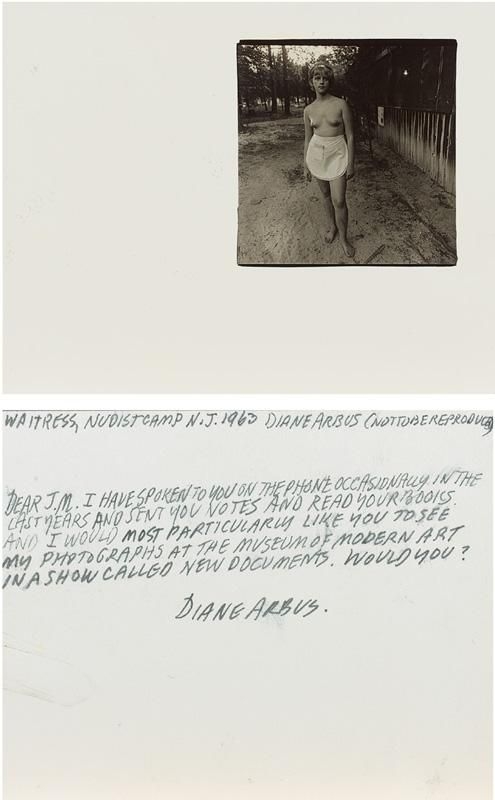 WAITRESS, NUDIST CAMP N.J. 1963 DIANE ARBUS (NOT TO BE REPRODUCED)
DEAR J.M. I HAVE SPOKEN TO YOU ON THE PHONE OCCASIONALLY IN THE
LAST YEARS AND SENT YOU NOTES AND READ YOUR BOOKS.
AND I WOULD MOST PARTICULARLY LIKE YOU TO SEE
MY PHOTOGRAPHS AT THE MUSEUM OF MODERN ART
IN A SHOW CALLED NEW DOCUMENTS. WOULD YOU?
DIANE ARBUS.